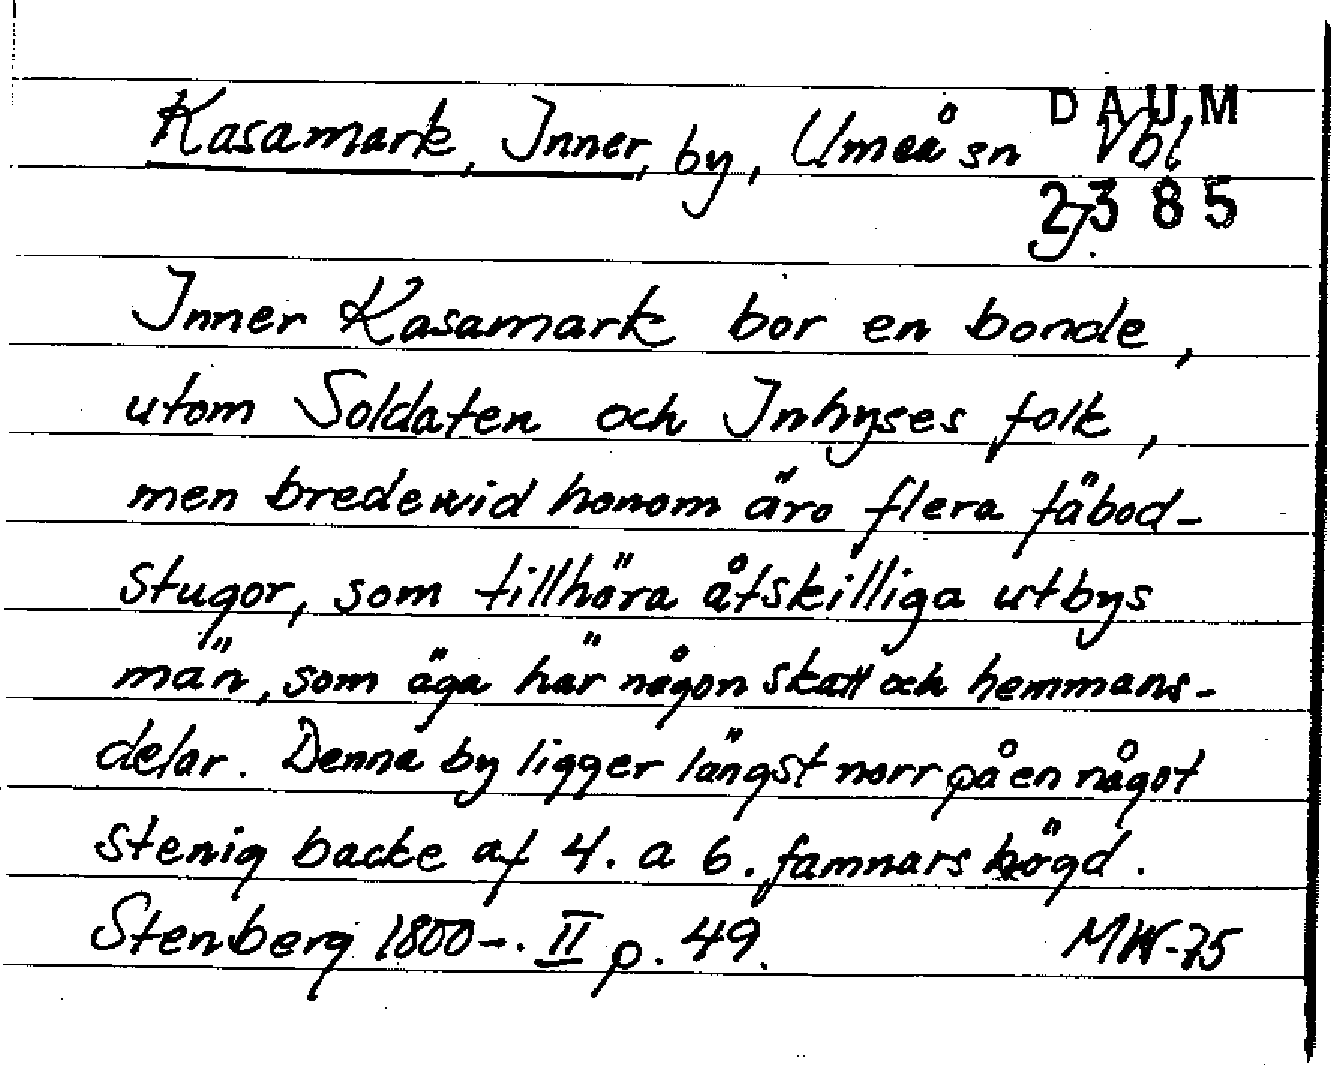 DAUM
Kasamark, Inner, by, Umeå sn Vbl
2385
J.
Inner Kasamark bor en bonde,
utom Soldaten och Inhyses folk,
men bredewid honom äro flera fäbod-
stugor, som tillhöra åtskilliga utbys
män, som äga här någon skatt och hemmans-
delar. Denna by ligger längst norr på en något
stenig backe af 4. a 6. famnars högd.
Stenberg 1800-. II p. 49. MW-75